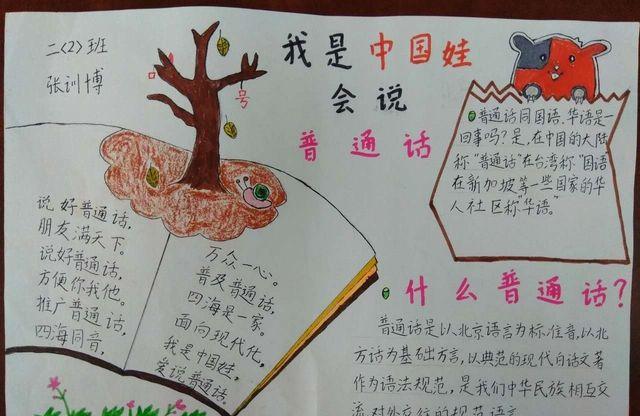 二〈2〉班
张训博
口
号
我是中国娃
会说
普通话
普通话同国语、华语是一
回事吗?是,在中国的大陆
称"普通话"在台湾称"国语
在新加坡等一些国家的华
人社区称"华语"。
说好普通话,
朋友满天下。
说好普通话,
方便你我他。
推广普通话,
四海同音,
万众一心。
普及普通话,
四海是一家。
面向现代化,
我是中国娃,
爱说普通话
什么普通话?
普通话是以北京语言为标准音,以北
方话为基础方言,以典范的现代白话文著
作为语法规范,是我们中华民族相互交
流对外交往的规范语言